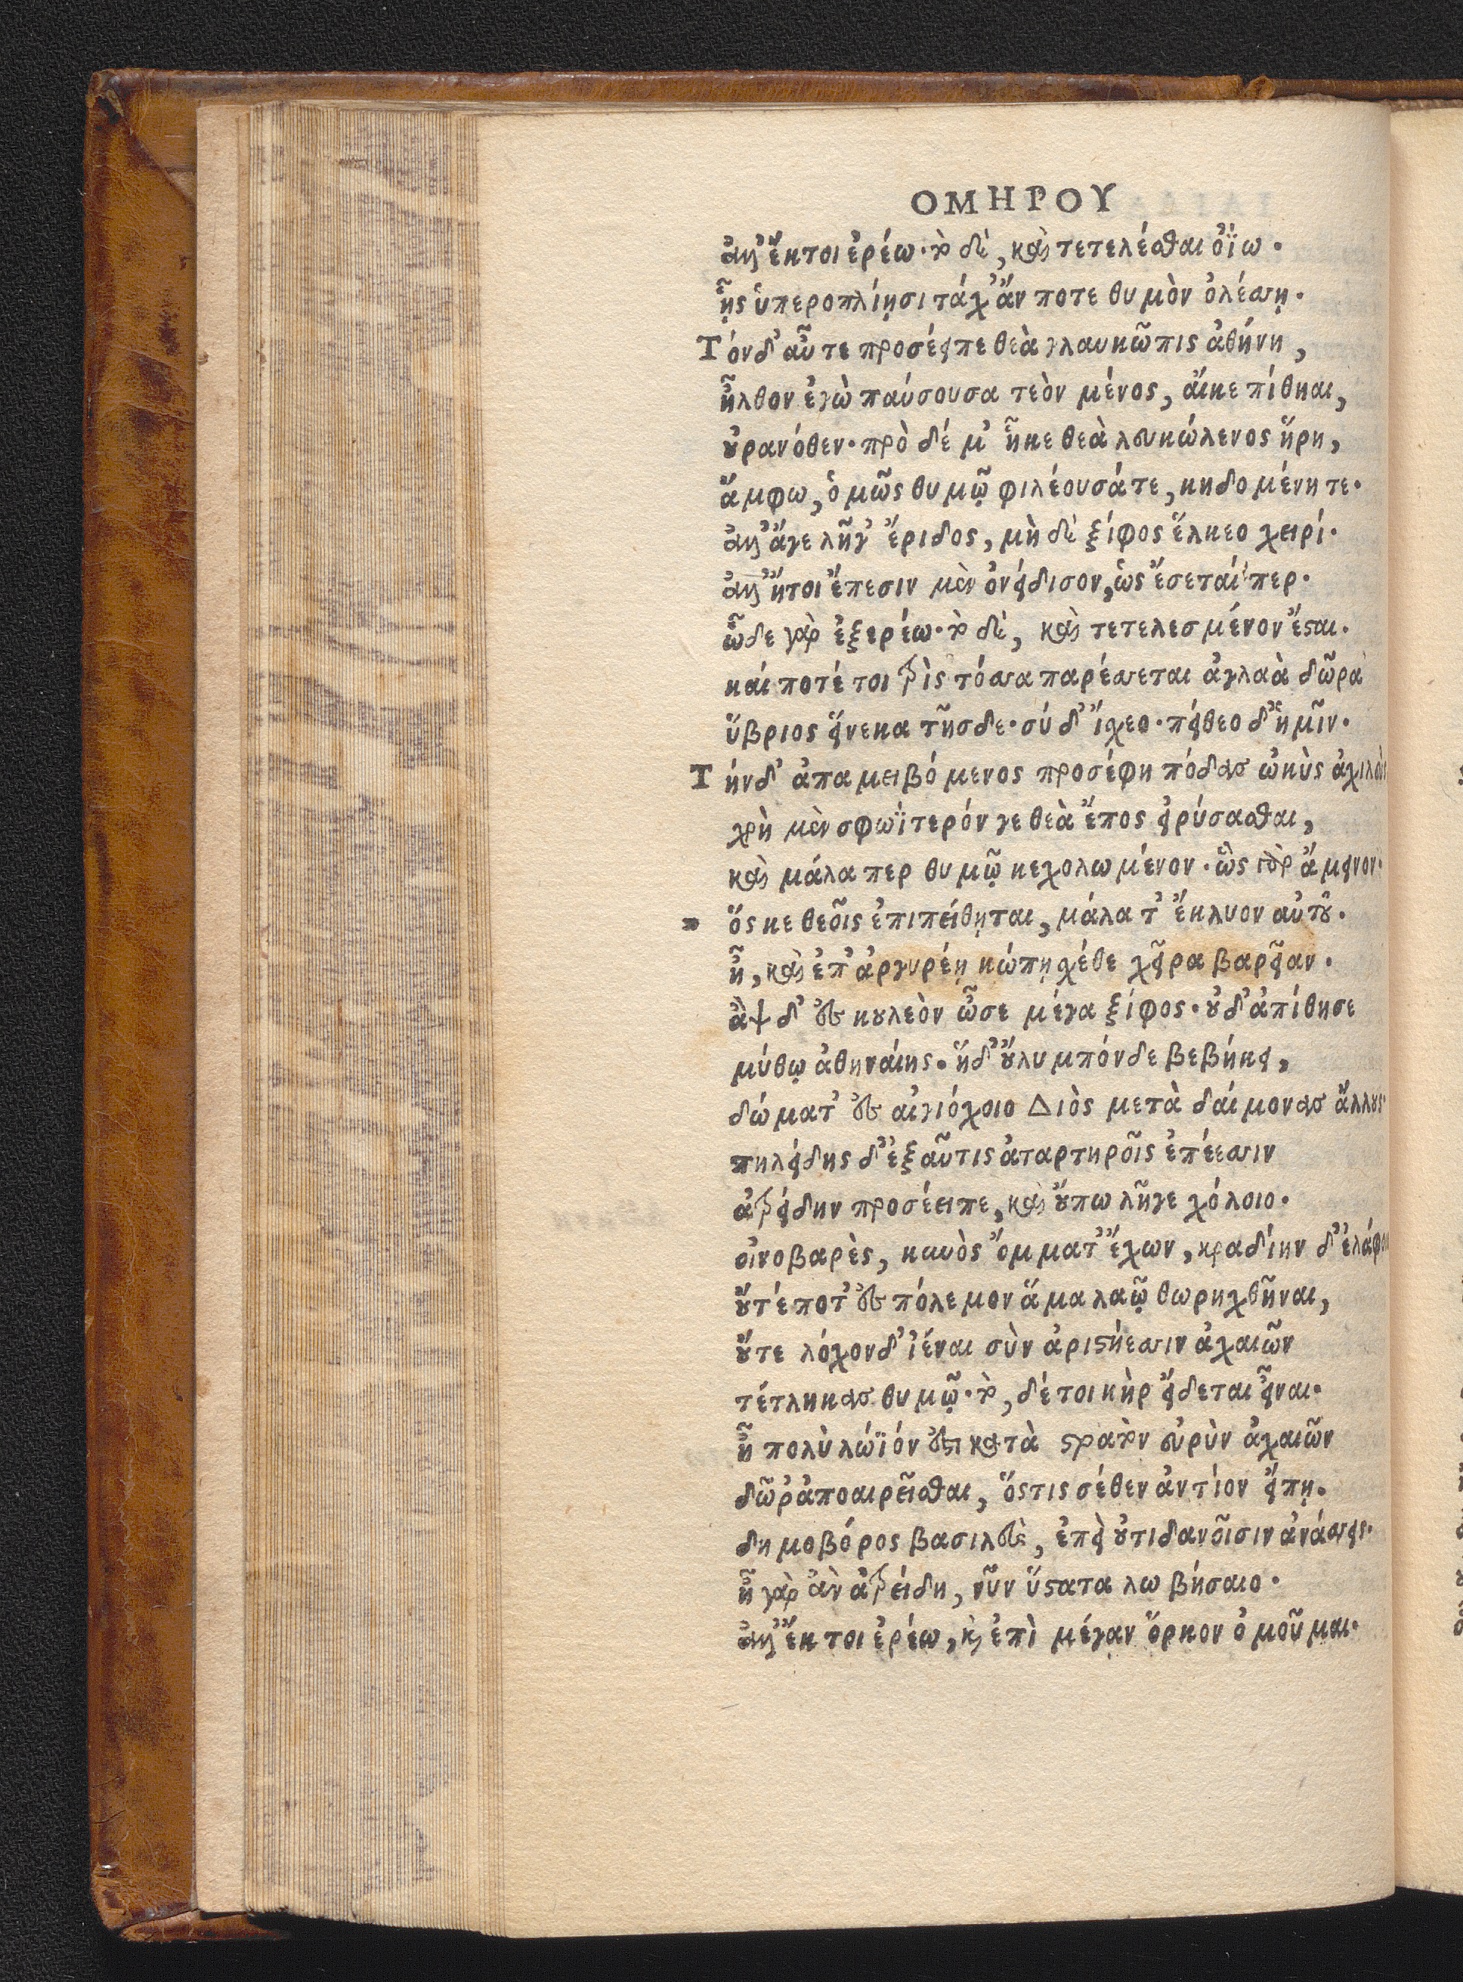 ΟΜΗΡΟΥ
ἀλλ' ἔκτοι ἐρέω· τὸ δὲ, καὶ τετελέσθαι ὀΐω·
ᾗς ὑπεροπλίῃσι τάχ' ἄν ποτε θυμὸν ὀλέσσῃ·
Τόνδ' αὖτε προσέειπε θεὰ γλαυκῶπις ἀθήνη,
ἦλθον ἐγὼ παύσουσα τεὸν μένος, αἴκε πίθηαι,
οὐρανόθεν· πρὸ δέ μ' ἧκε θεὰ λευκώλενος ἥρη,
ἄμφω, ὁμῶς θυμῷ φιλέουσά τε, κηδομένη τε·
ἀλλ' ἄγε λῆγ' ἔριδος, μὴ δὲ ξίφος ἕλκεο χειρί·
ἀλλ' ἤτοι ἔπεσιν μὲν ὀνείδισον, ὡς ἔσεταί περ·
ὧδε γὰρ ἐξερέω· τὸ δὲ, καὶ τετελεσμένον ἔσται·
καί ποτέ τοι τρὶς τόσσα παρέσσεται ἀγλαὰ δῶρα
ὕβριος εἵνεκα τῆσδε· σύ δ' ἴσχεο· πείθεο δ' ἡμῖν·
Τήνδ' ἀπαμειβόμενος προσέφη πόδας ὠκὺς ἀχιλλεὺς
χρὴ μὲν σφωΐτερόν γε θεὰ ἔπος εἰρύσασθαι,
καὶ μάλα περ θυμῷ κεχολωμένον· ὣς γὰρ ἄμεινον·
» ὅς κε θεοῖς ἐπιπείθηται, μάλα τ' ἔκλυον αὐτοῦ·
ἦ, καὶ ἐπ' ἀργυρέῃ κώπῃ χέθε χεῖρα βαρεῖαν·
ἂψ δ' ἐς κουλεὸν ὦσε μέγα ξίφος· οὐδ' ἀπίθησε
μύθῳ ἀθηναίης· ἥδ' οὔλυμπόνδε βεβήκει,
δώματ' ἐς αἰγιόχοιο Διὸς μετὰ δαίμονας ἄλλους·
πηλείδης δ' ἐξαῦτις ἀταρτηροῖς ἐπέεσσιν
ἀτρείδην προσέειπε, καὶ οὔπω λῆγε χόλοιο·
οἰνοβαρὲς, κυνὸς ὄμματ' ἔχων, κραδίην δ' ἐλάφοιο
οὔτέ ποτ' ἐς πόλεμον ἅμα λαῷ θωρηχθῆναι,
οὔτε λόχονδ' ἰέναι σὺν ἀριστήεσσιν ἀχαιῶν
τέτληκας θυμῷ· τὸ, δέ τοι κὴρ εἴδεται εἶναι·
ἦ πολὺ λώϊόν ἐστι κατὰ στρατὸν εὐρὺν ἀχαιῶν
δῶρ' ἀποαιρεῖσθαι, ὅστις σέθεν ἀντίον εἴπῃ·
δημοβόρος βασιλεὺς, ἐπεὶ οὐτιδανοῖσιν ἀνάσσεις·
ἦ γὰρ ἂν ἀτρείδη, νῦν ὕστατα λωβήσαιο·
ἀλλ' ἔκ τοι ἐρέω, καὶ ἐπὶ μέγαν ὅρκον ὀμοῦμαι·